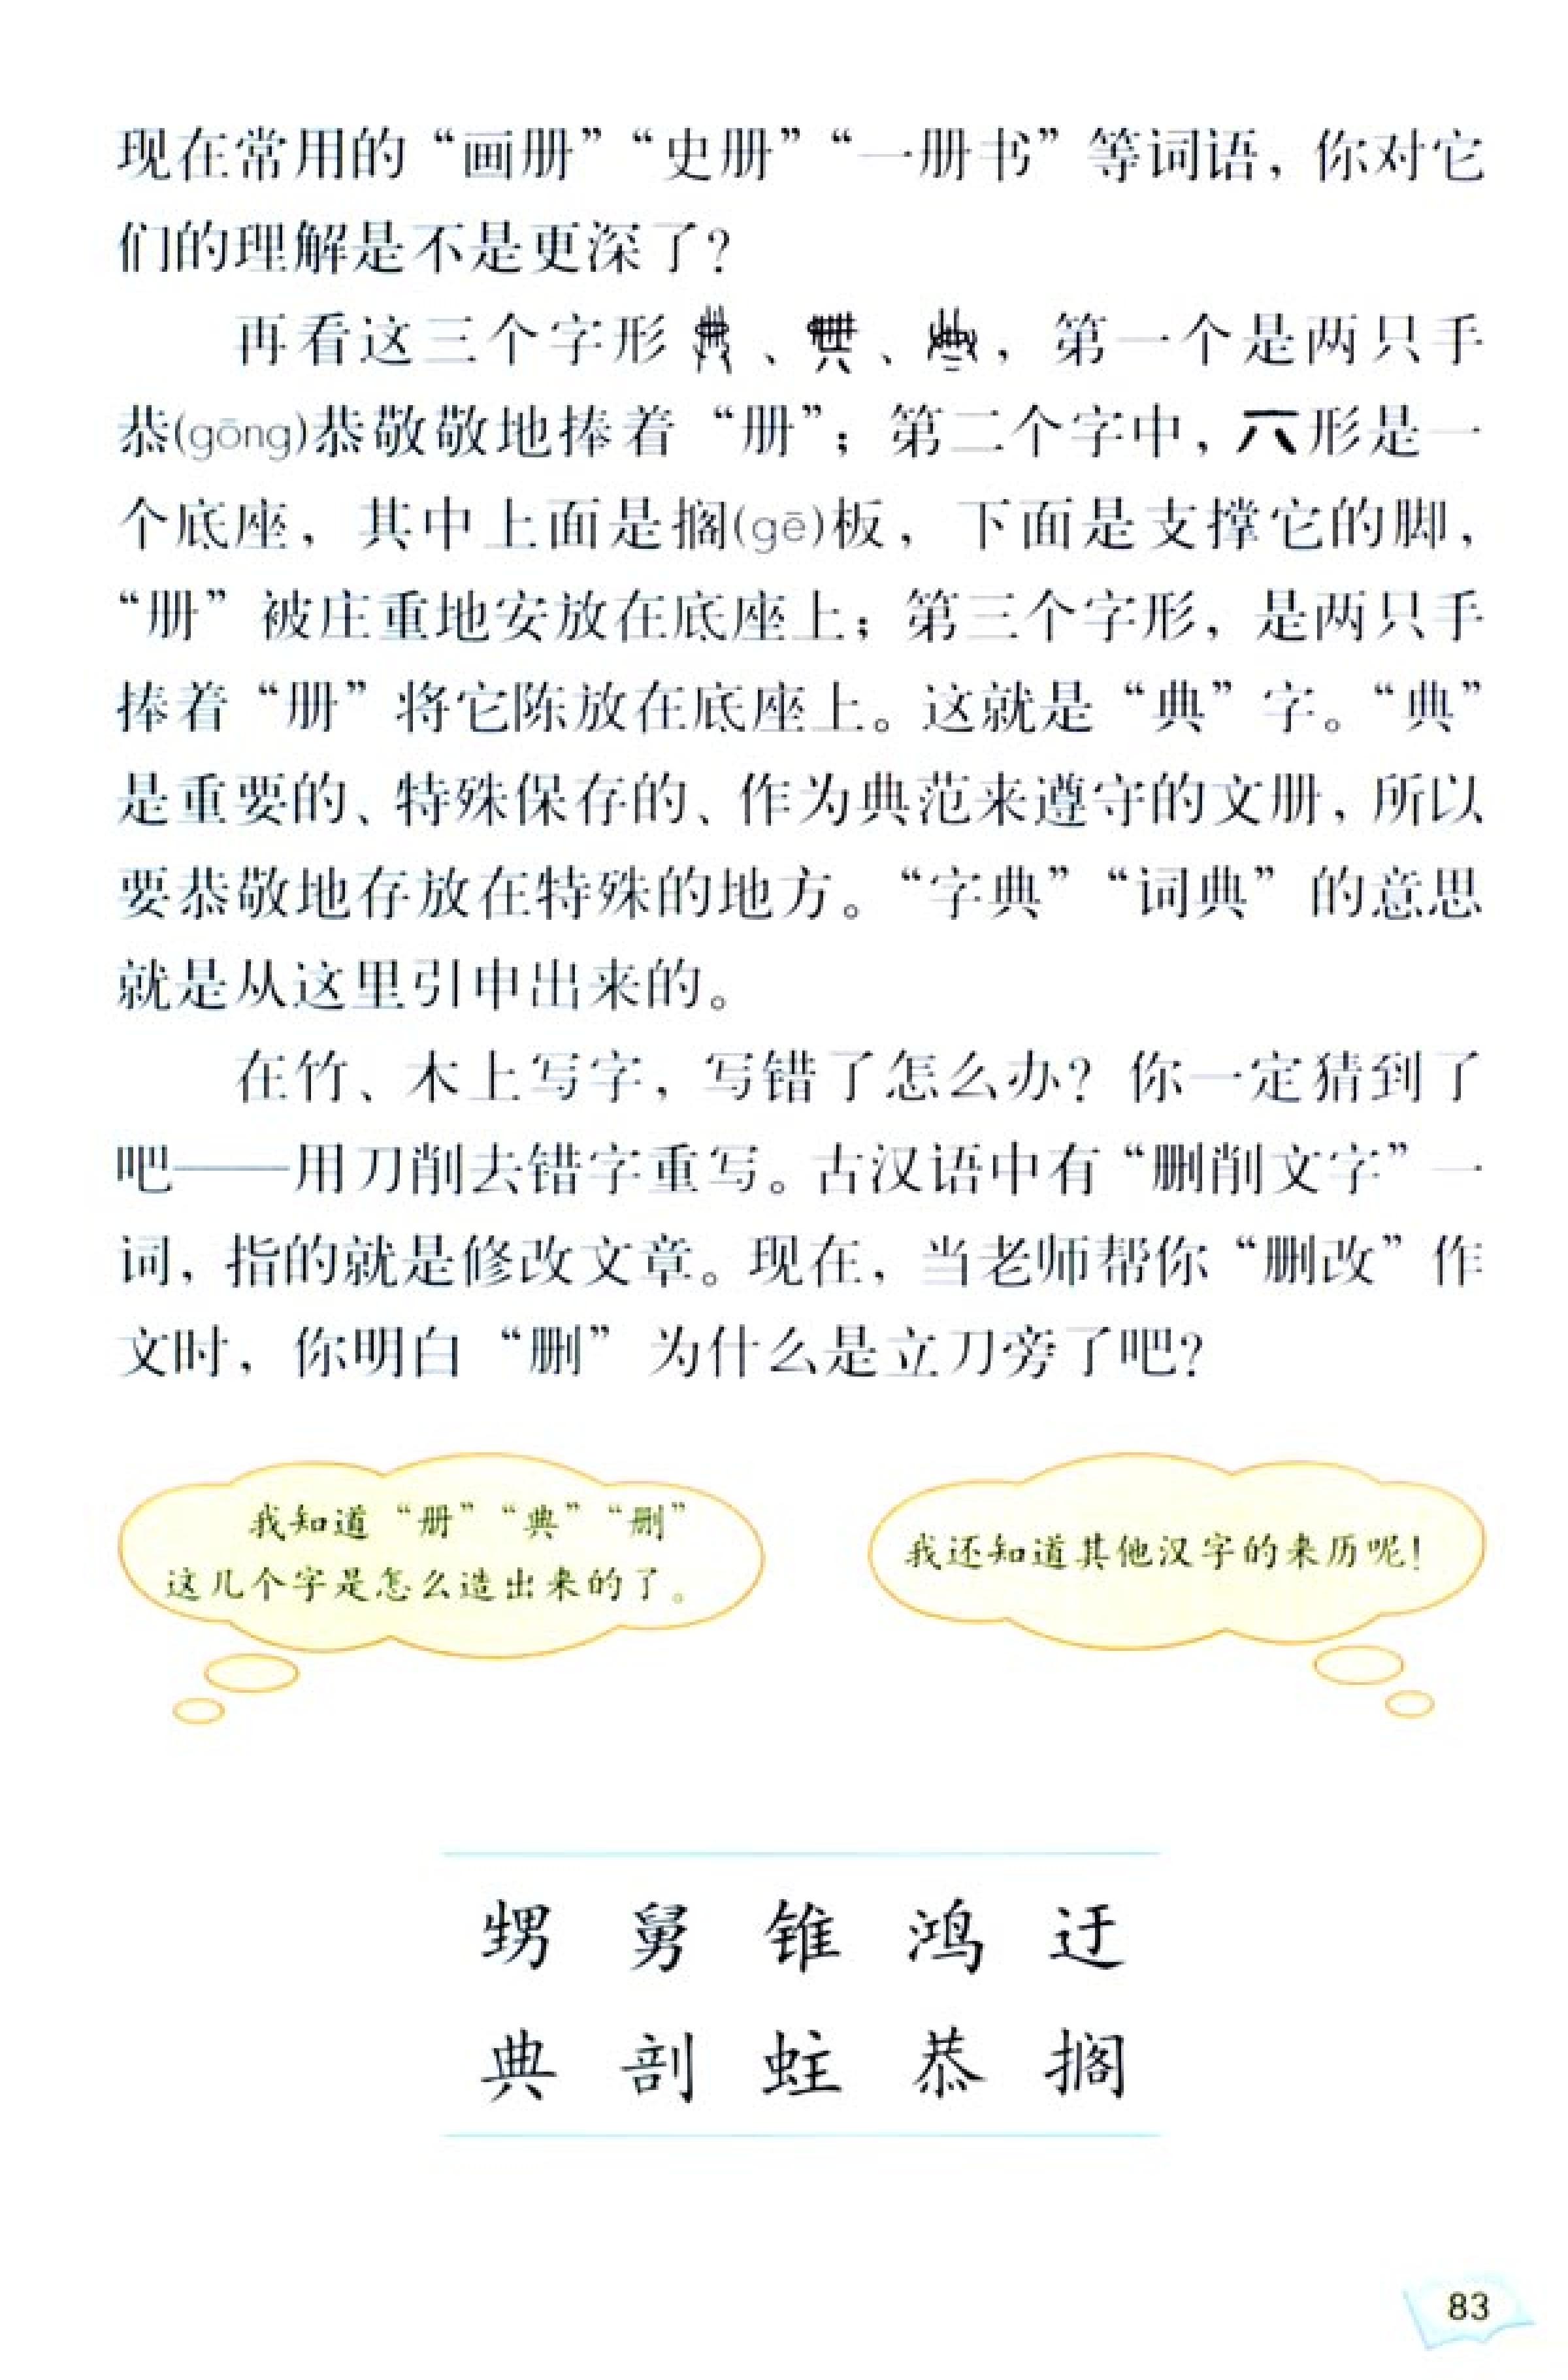 现在常用的“画册”“史册”“一册书”等词语，你对它
们的理解是不是更深了？
再看这三个字形、、，第一个是两只手
恭(gōng)恭敬敬地捧着“册”；第二个字中，六形是一
个底座，其中上面是搁(gē)板，下面是支撑它的脚，
“册”被庄重地安放在底座上；第三个字形，是两只手
捧着“册”将它陈放在底座上。这就是“典”字。“典”
是重要的、特殊保存的、作为典范来遵守的文册，所以
要恭敬地存放在特殊的地方。“字典”“词典”的意思
就是从这里引申出来的。
在竹、木上写字，写错了怎么办？你一定猜到了
吧——用刀削去错字重写。古汉语中有“删削文字”一
词，指的就是修改文章。现在，当老师帮你“删改”作
文时，你明白“删”为什么是立刀旁了吧？
我知道“册”“典”“删”
这几个字是怎么造出来的了。
我还知道其他汉字的来历呢！
甥 舅 锥 鸿 迂
典 剖 蛀 恭 搁
83